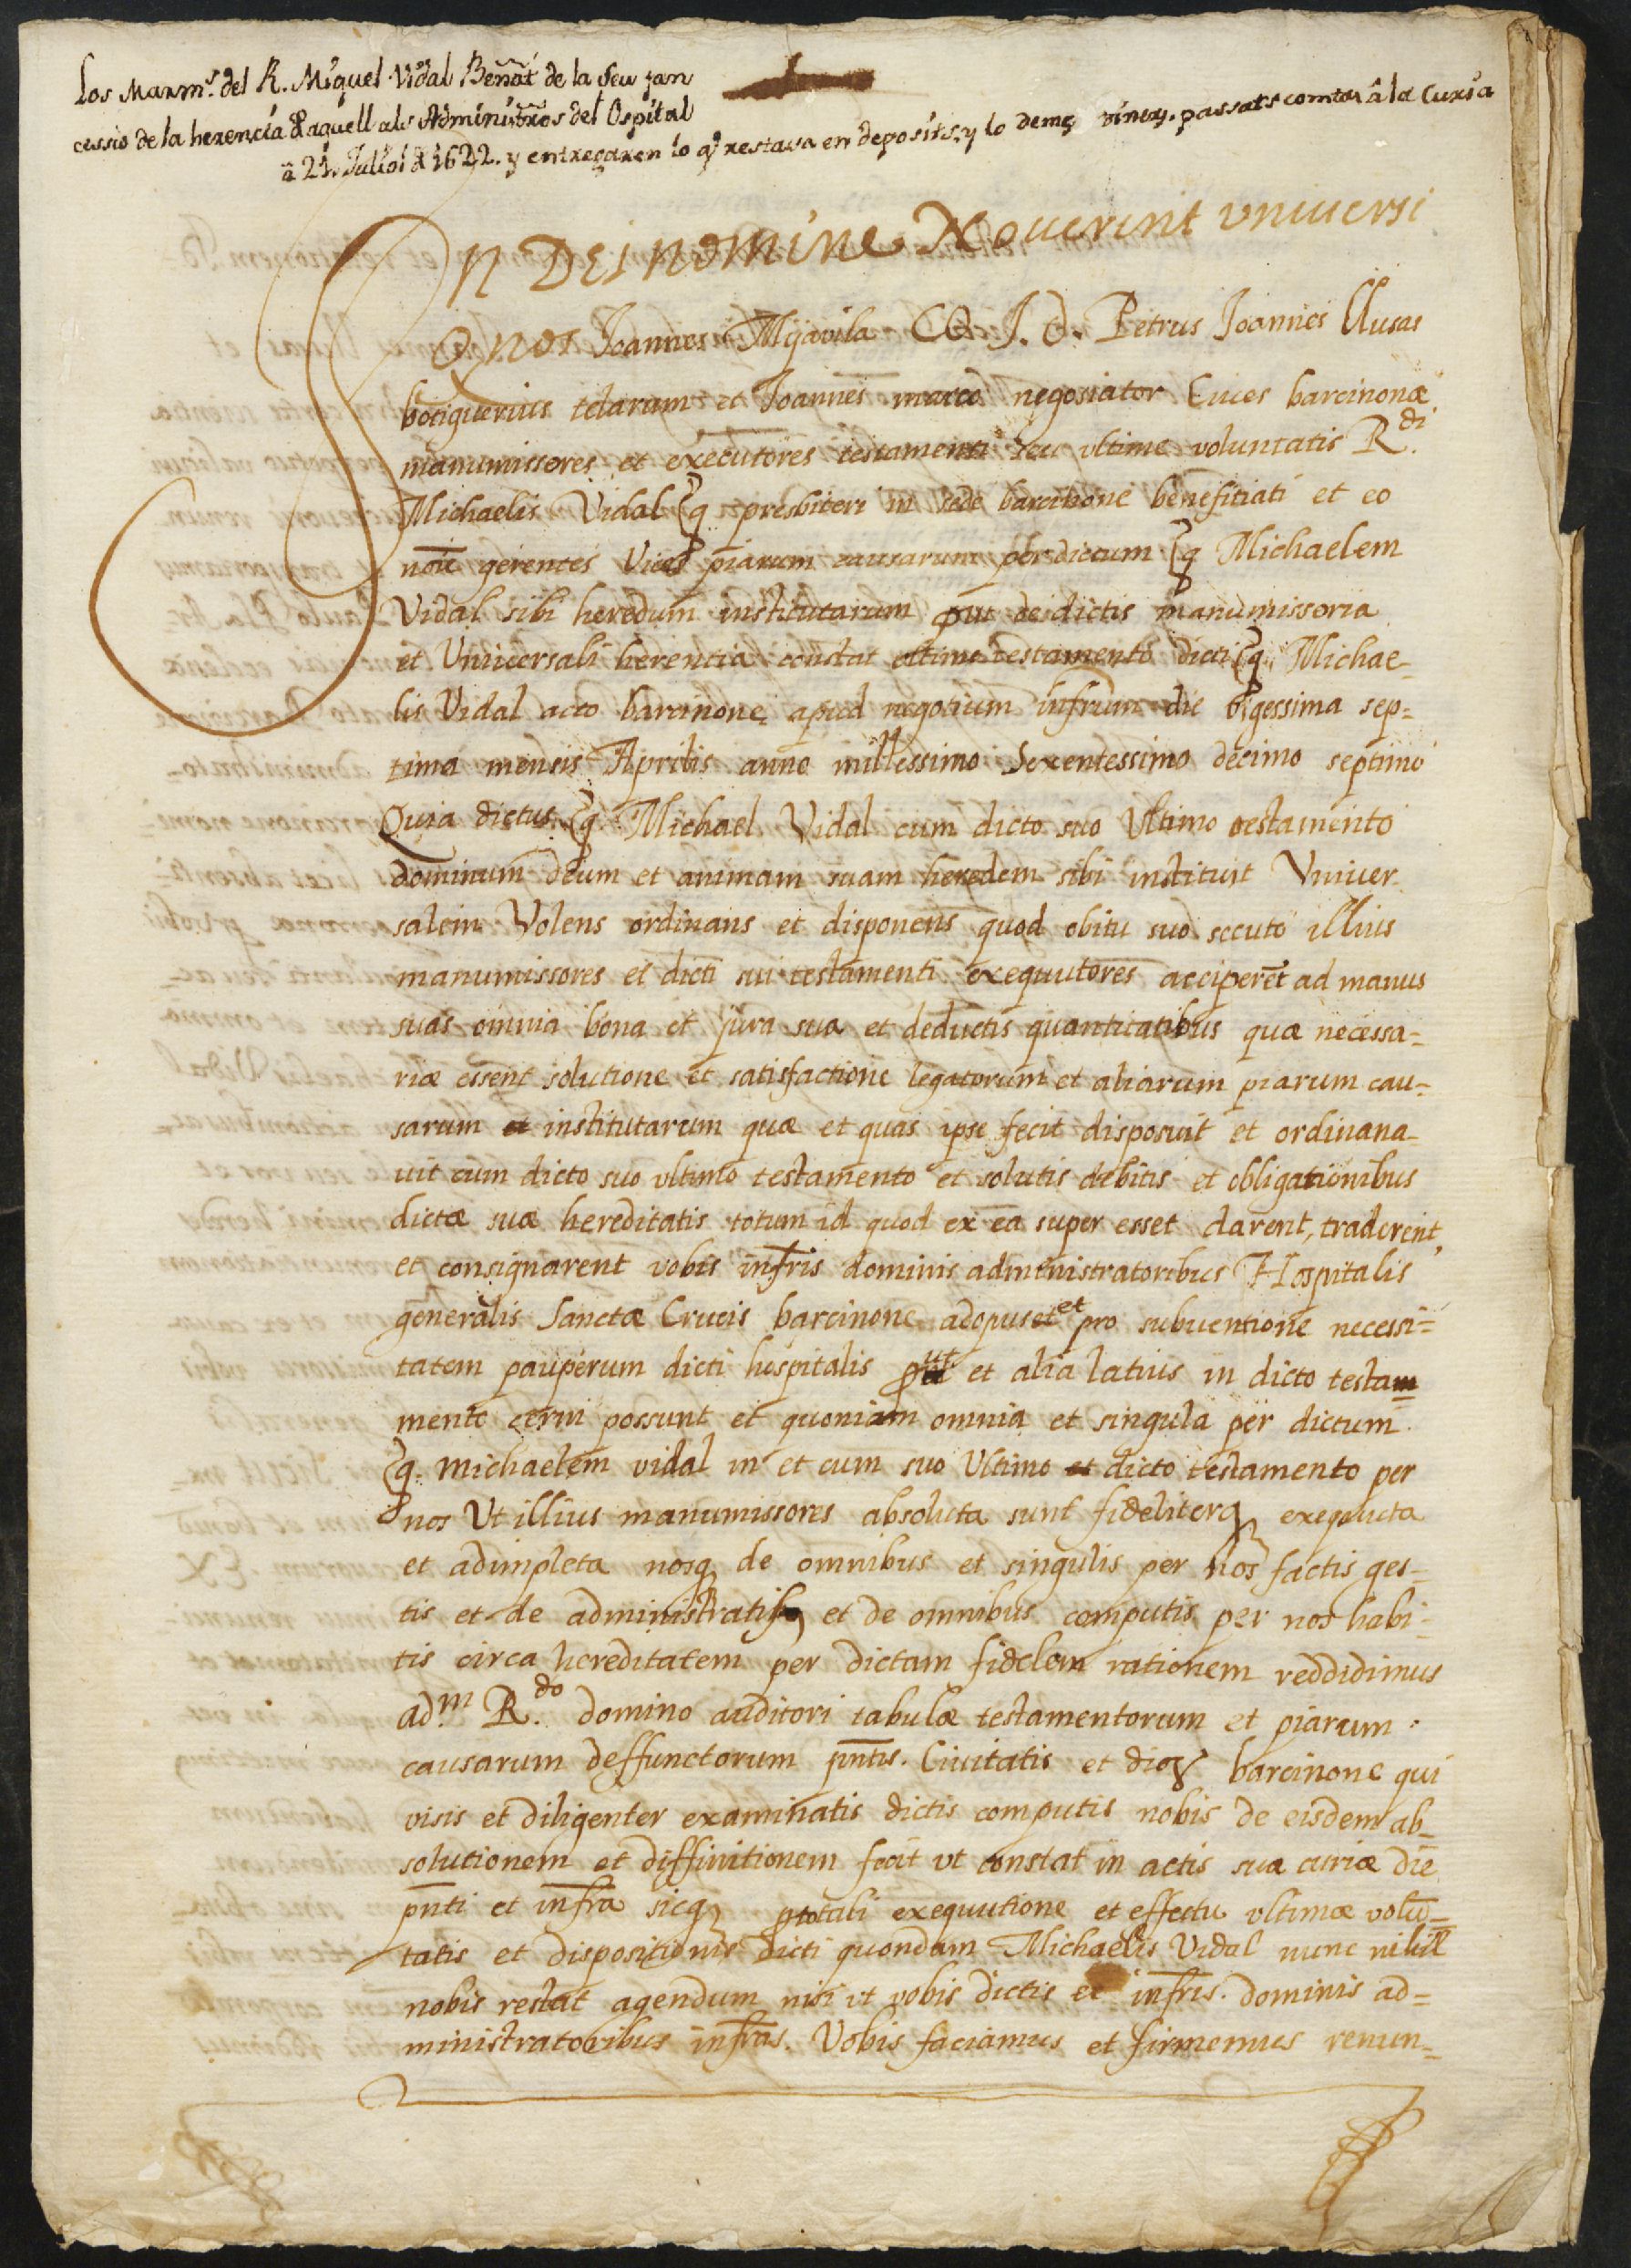 Los Marm.s del R. Miquel Vidal Benãt de la Seu fan
cessio de la herencia d aquell als Administrõs del Ospital
â 21. Juliol d 1622. y entregaren lo q restava en deposits, y lo demes diners. passats comtes â la Curia
In Dei nomine Nouerint vniuersi
Q nos Joannes Mijavila J. D. Petrus Joannes llusas
botiguerius telarum et Joannes marco negosiator Ciues barcinonæ
manumissores et executores testamenti seu vltime voluntatis R.di
Michaelis Vidal q presbiteri in sede barcinone benefitiati et eo
nõie gerentes Vices piarum causarum per dictum q Michaelem
Vidal sibi heredum institutarum put de dictis manumissoria
et Vniuersali herentia constat ultimo testamento dicti q. Michae-
lis Vidal acto barcinone apud negotium infrum die vigessima sep=
tima mensis Aprilis anno millessimo Sexentessimo decimo septimo
Quia dictus q. Michael Vidal cum dicto suo Vltimo testamento
dominum deum et animam suam heredem sibi instituit Vniuer
salem Volens ordinans et disponens quod obitu suo secuto illius
manumissores et dicti sui testamenti exequutores acciperẽt ad manus
suas omnia bona et jura sua et deductis quantitatibus quæ necessa=
riæ essent solutione et satisfactione legatorum et aliarum piarum cau=
sarum et institutarum quæ et quas ipse fecit disposuit et ordinana-
uit cum dicto suo vltimo testamento et solutis debitis et obligationibus
dictæ suæ hereditatis totum id quod ex ea super esset darent, traderent,
et consignarent vobis infris dominis administratoribus Hospitalis
generalis Sanctæ Crucis barcinone adopus et et pro subuentione necessi=
tatem pauperum dicti hospitalis put et alia latius in dicto testam
mento cerni possunt et quoniam omnia et singula per dictum
q. michaelem vidal in et cum suo Vltimo et dicto testamento per
nos Vt illius manumissores absoluta sunt fideliterq exequuta
et adimpleta nosq de omnibus et singulis per nos factis ges-
tis et de administratis et de omnibus computis per nos habi-
tis circa hereditatem per dictam fidelem rationem reddidimus
ad.m R.do domino auditori tabulæ testamentorum et piarum
causarum deffunctorum pñtis. Ciuitatis et dioç barcinone qui
visis et diligenter examinatis dictis computis nobis de eisdem ab-
solutionem et diffinitionem fecit vt constat in actis suæ curiæ die
pñti et infra sicq p totali exequutione et effectu vltimæ volũ=
tatis et dispositionis dicti quondam Michaelis Vidal nunc nihil
nobis restat agendum nisi vt vobis dictis et infris. dominis ad=
ministratoribus infras. Vobis faciamus et firmemus renun=